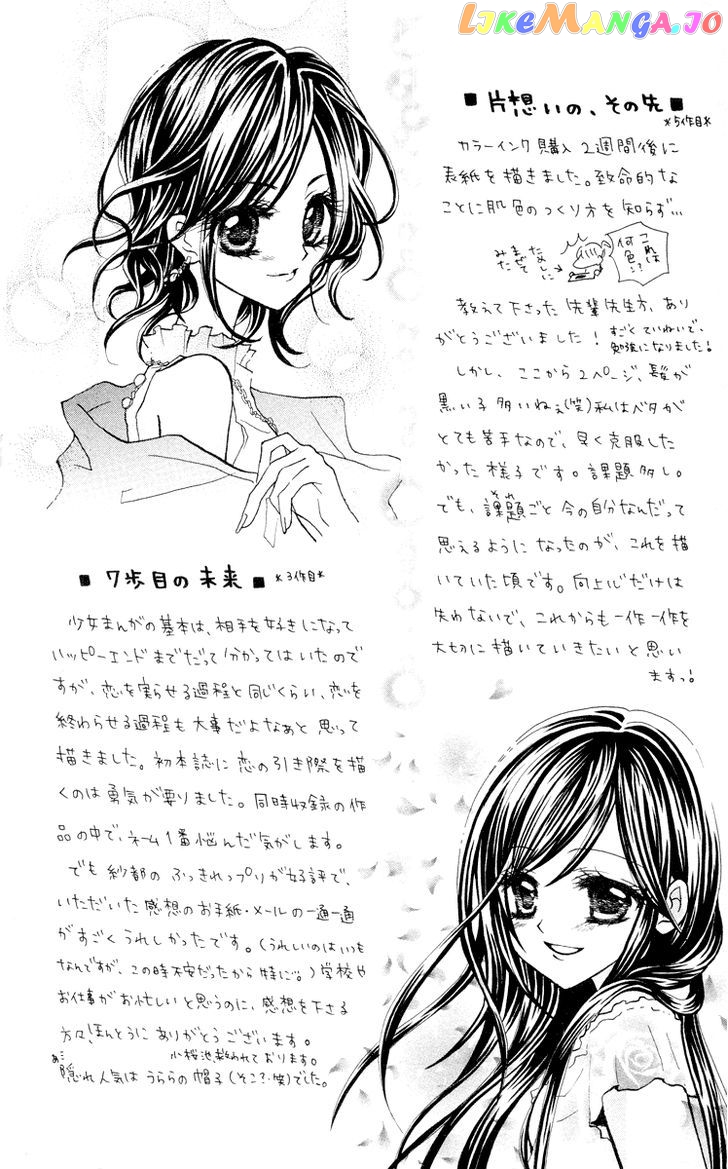 LIKEMANGA.IO
■片想いの、その先■
*5作目*
カラーインク購入2週間後に
表紙を描きました。致命的な
ことに肌色のつくり方を知らず…
みたて
なしに
この肌は
何色…?
教えて下さった先輩先生方、あり
がとうございました!
すごくていねいで、
勉強になりました!
しかし、ここから2ページ、髪が
黒い子多いねぇ(笑)私はベタが
とても苦手なので、早く克服した
かった様子です。課題多し。
でも、課題ごと今の自分なんだって
思えるようになったのが、これを描
いていた頃です。向上心だけは
失わないで、これからも一作一作を
大切に描いていきたいと思い
ますっ!
■7歩目の未来■
*3作目*
少女まんがの基本は、相手を好きになって
ハッピーエンドまでだって分かってはいたので
すが、恋を実らせる過程と同じくらい、恋を
終わらせる過程も大事だよなぁと思って
描きました。初本誌に恋の引き際を描
くのは勇気が要りました。同時収録の作
品の中で、ネーム1番悩んだ気がします。
でも紗都のふっきれっプリが好評で、
いただいた感想のお手紙・メールの一通一通
がすごくうれしかったです。(うれしいのはいつも
なんですが、この時不安だったから特に…。)学校や
お仕事がお忙しいと思うのに、感想を下さる
方々、ほんとうにありがとうございます。
小桜池救われております。
隠れ人気はうららの帽子(そこ?・笑)でした。